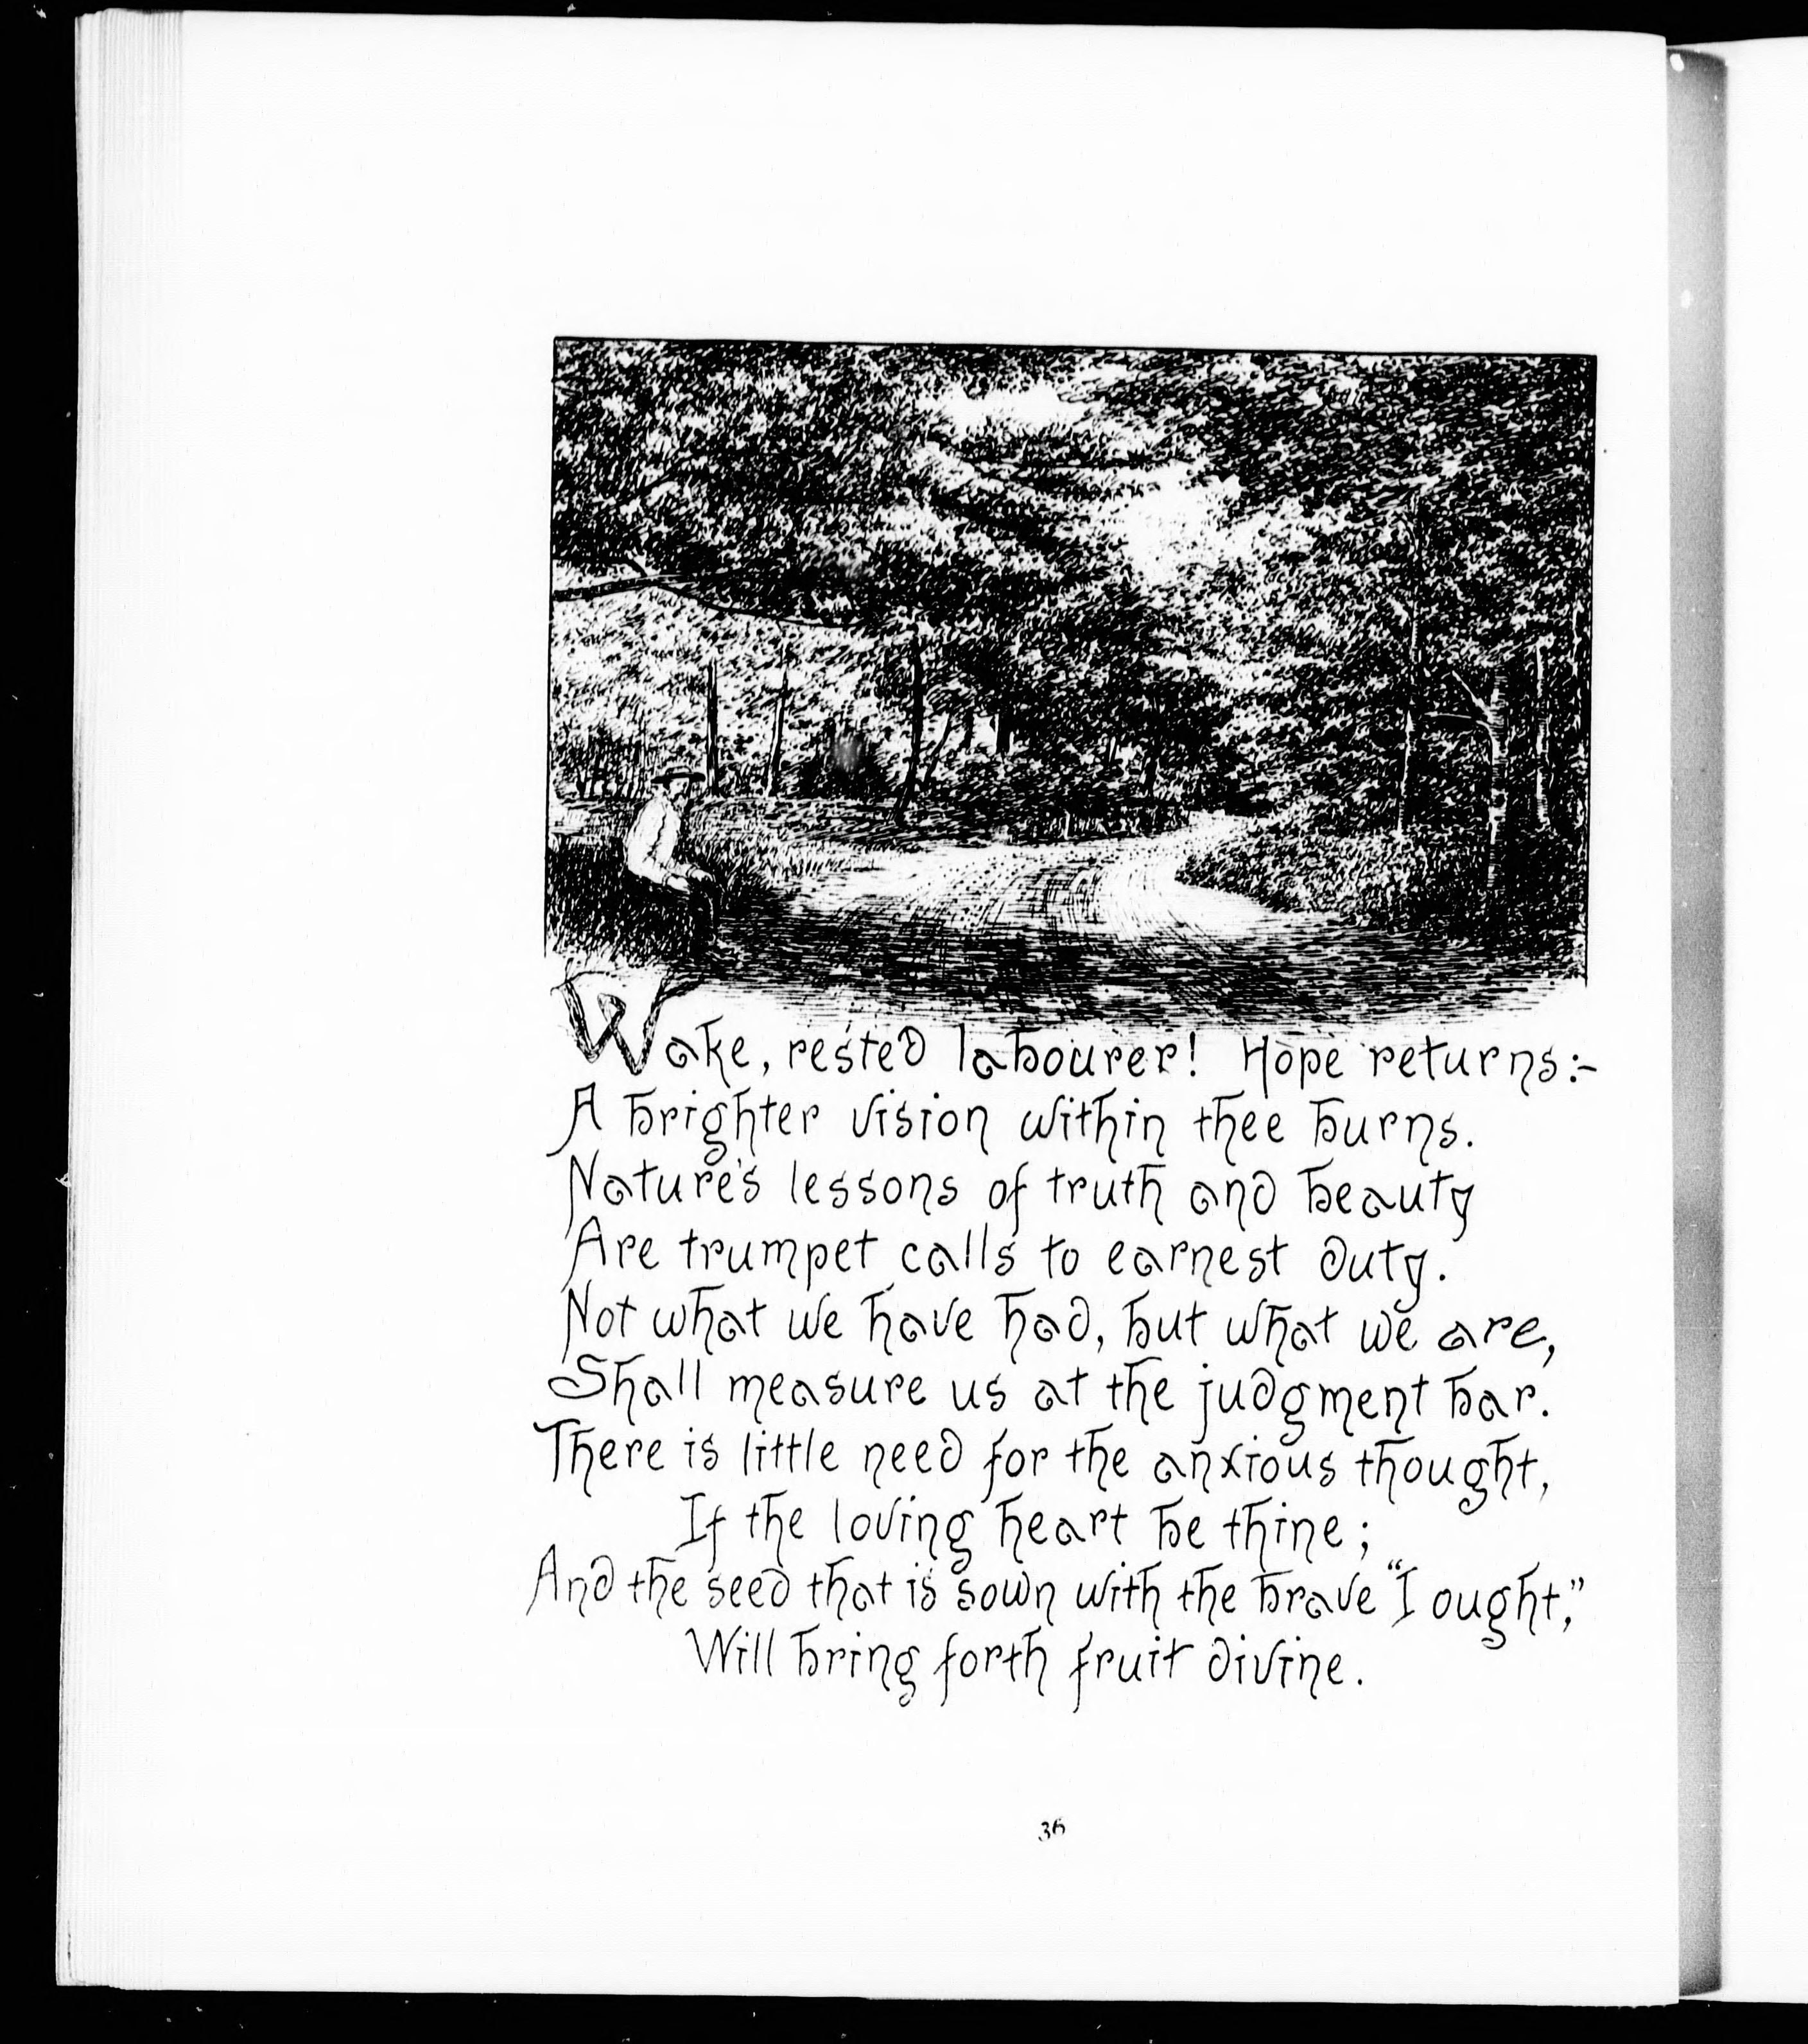 Wake, rested labourer! Hope returns:-
A brighter vision within thee burns.
Nature's lessons of truth and beauty
Are trumpet calls to earnest duty.
Not what we have had, but what we are,
Shall measure us at the judgment bar.
There is little need for the anxious thought,
If the loving heart be thine;
And the seed that is sown with the brave "I ought,"
Will bring forth fruit divine.
36